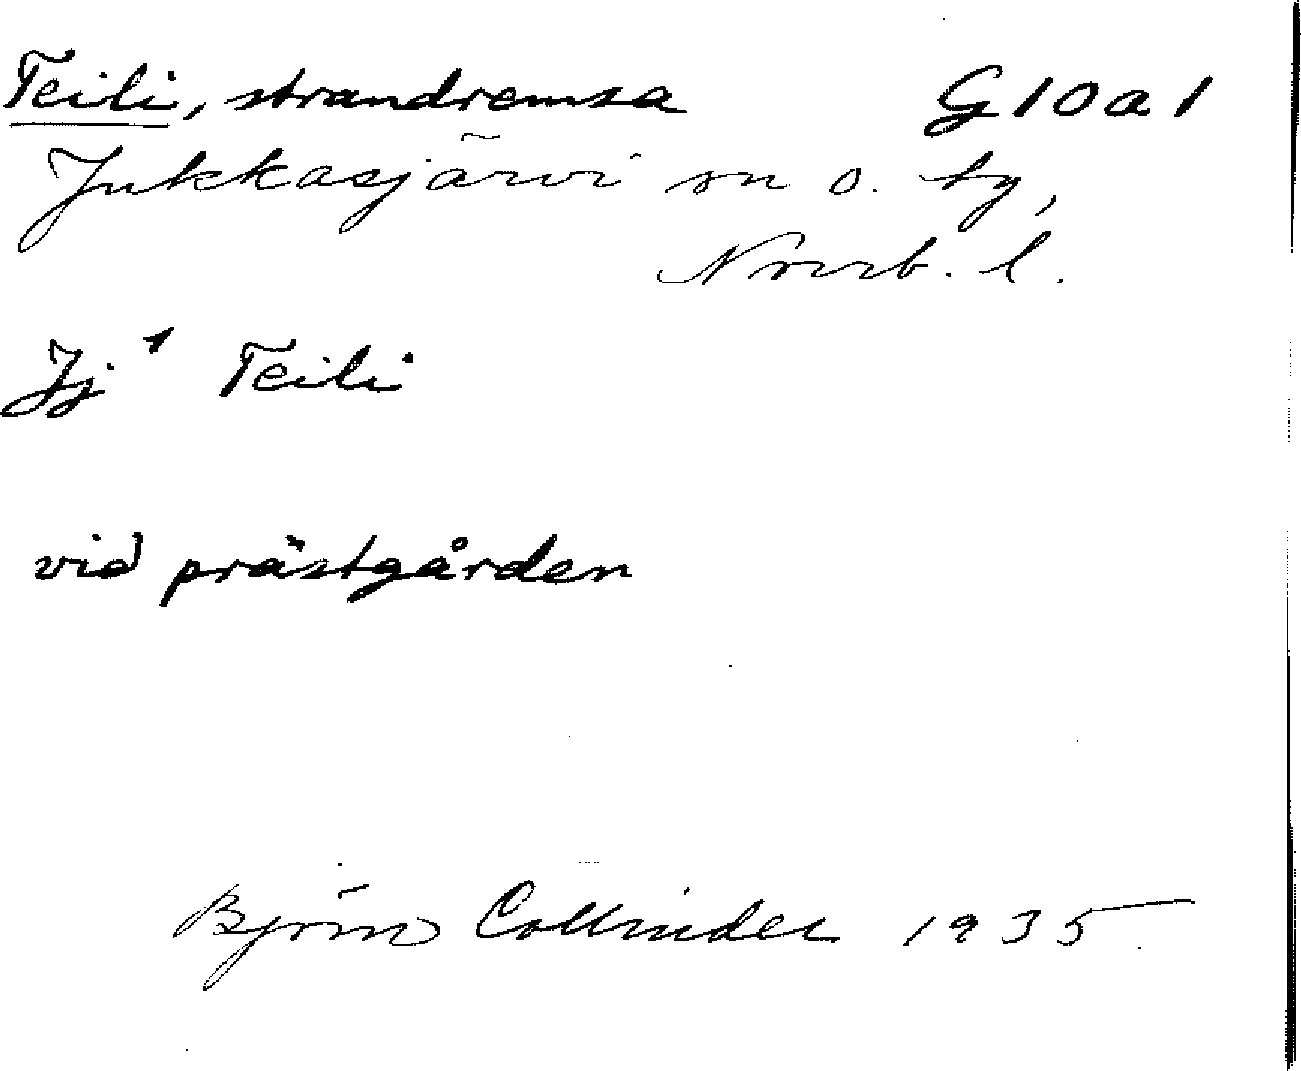 Teili, strandremsa G10a1
Jukkasjärvi sn o. tg,
Norrb. l.
Jj 1 Teili
vid prästgården
Björn Collinder 1935.